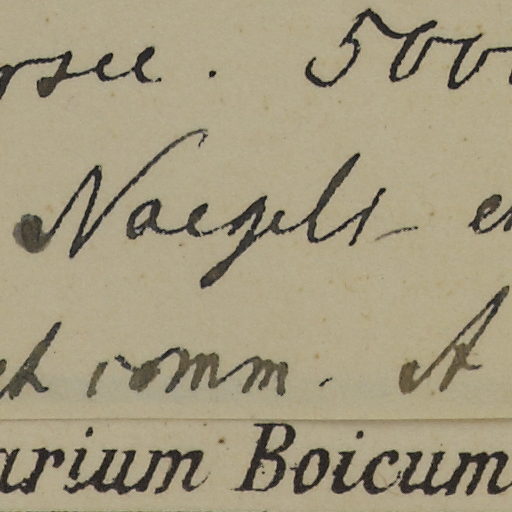 rsee. 500
Naegeli e
et comm. A
arium Boicum